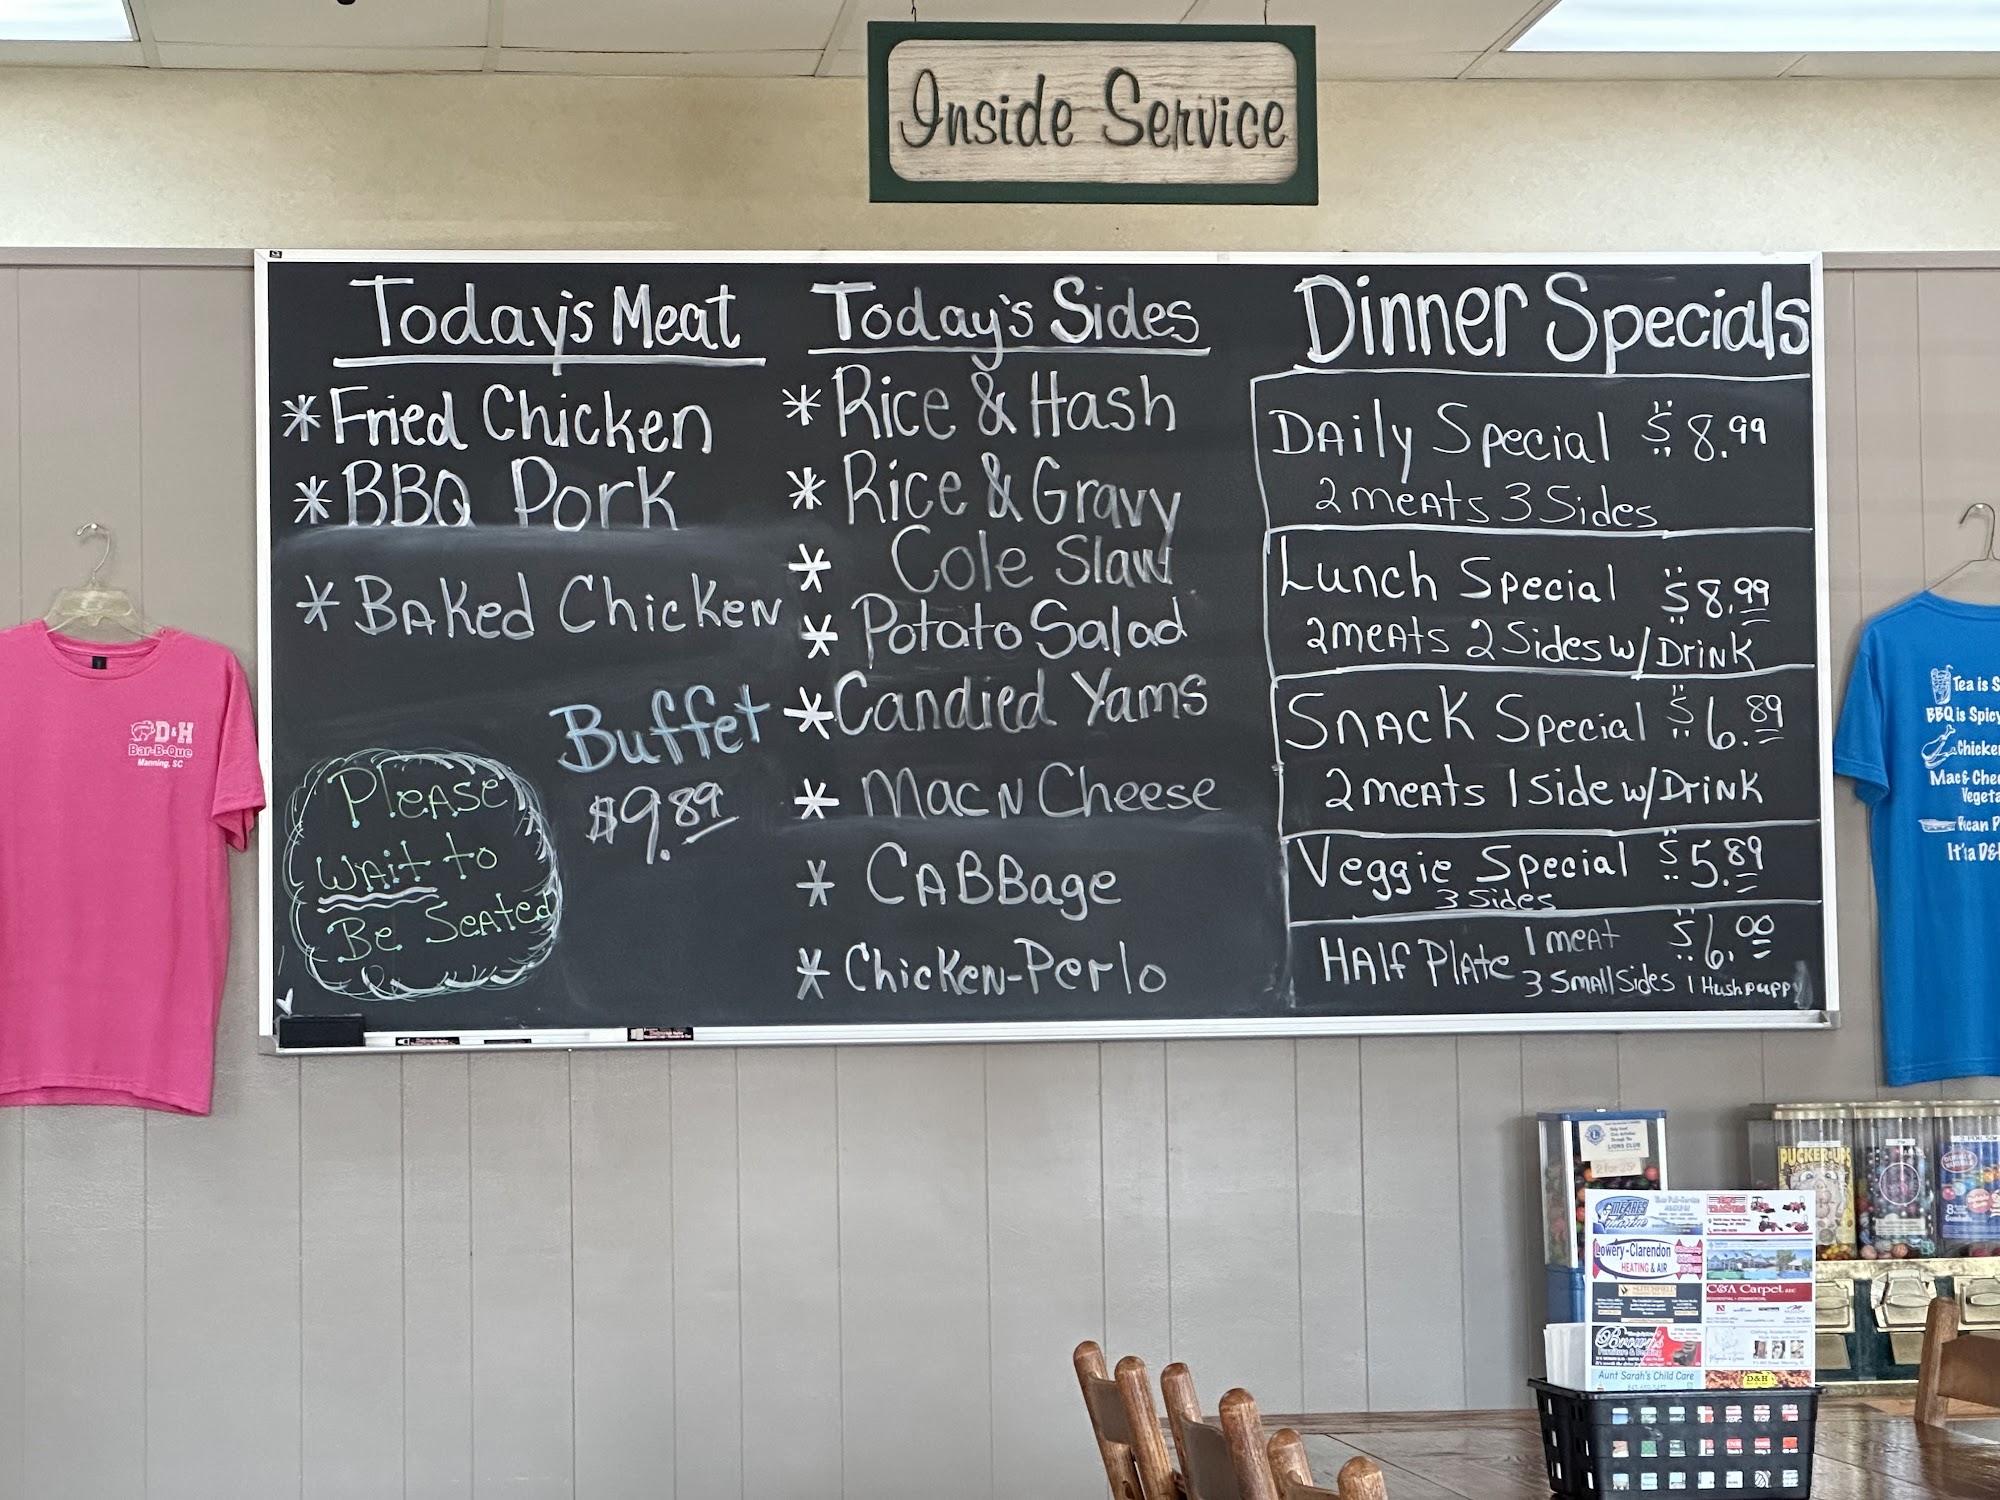 Inside Service
Today's Meat
* Fried Chicken
* BBQ Pork
* Baked Chicken
Buffet
$9.89
Please
Wait to
Be Seated
Today's Sides
* Rice & Hash
* Rice & Gravy
* Cole Slaw
* Potato Salad
* Candied Yams
* Mac N Cheese
* CABBage
* Chicken-Perlo
Dinner Specials
Daily Special $8.99
2 meats 3 Sides
Lunch Special $8.99
2 meats 2 Sides w/ Drink
Snack Special $6.89
2 meats 1 Side w/ Drink
Veggie Special $5.89
3 Sides
Half Plate 1 meat $6.00
3 Small Sides 1 Hushpuppy
D&H
Bar-B-Que
Manning, SC
Tea is S
BBQ is Spicy
Chicken
Mac & Chee
Vegeta
Pecan P
It's a D&
LIONS CLUB
2 for 25¢
PUCKER-UPS
Lowery-Clarendon
HEATING & AIR
C&A Carpet LLC
Brown's
Furniture & Bedding
Aunt Sarah's Child Care
D&H